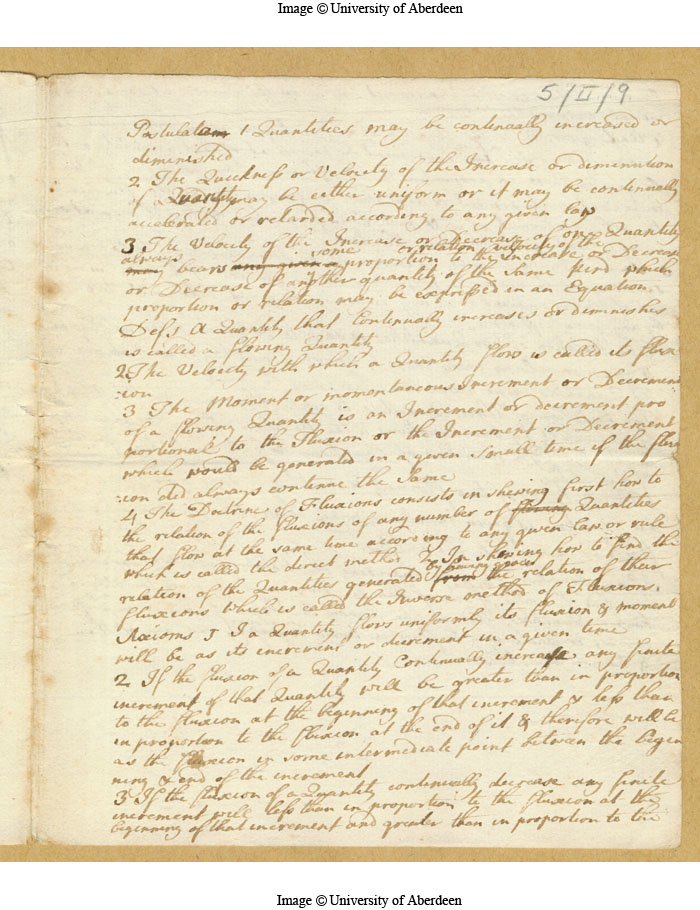 Image © University of Aberdeen
5/II/9
Postulatum 1 Quantities may be continually increased or
diminished
2 The Quickness or Velocity of the Increase or diminution
of a Quantity may be either uniform or it may be continually
accelerated or retarded according to any given law
3 The Velocity of the Increase or Decrease of one Quantity
always some or relation velocity of the
may bears any given a proportion to the Increase or Decrease
or Decrease of another quantity of the same kind which
proportion or relation may be expressed in an Equation.
Defs A Quantity that Continually increases or diminishes
is called a flowing Quantity
2 The Velocity with which a Quantity flows is called its flux
:ion
3 The Moment or momentaneous Increment or Decrement
of a flowing Quantity is an Increment or decrement pro
portional to the Fluxion or the Increment or Decrement
which would be generated in a given small time if the flux
:ion did always continue the same
4 The Doctrine of Fluxions consists in shewing first how to
the relation of the fluxions of any number of flowing Quantities
that flow at the same time according to any given law or rule
which is called the direct method & In shewing how to find the
by having given
relation of the Quantities generated from the relation of their
fluxions which is called the Inverse method of Fluxions.
Axioms 1 If a Quantity flows uniformly its fluxion & moment
will be as its increment or decrement in a given time
2 If the fluxion of a Quantity Continually increase any finite
increment of that Quantity will be greater than in proportion
to the fluxion at the beginning of that increment & less than
in proportion to the fluxion at the end of it & therefore will be
as the fluxion in some intermediate point between the begin
ning & end of the increment
3 If the fluxion of a Quantity continually decrease any finite
increment will less than in proportion to the fluxion at the
beginning of that increment and greater than in proportion to the
Image © University of Aberdeen